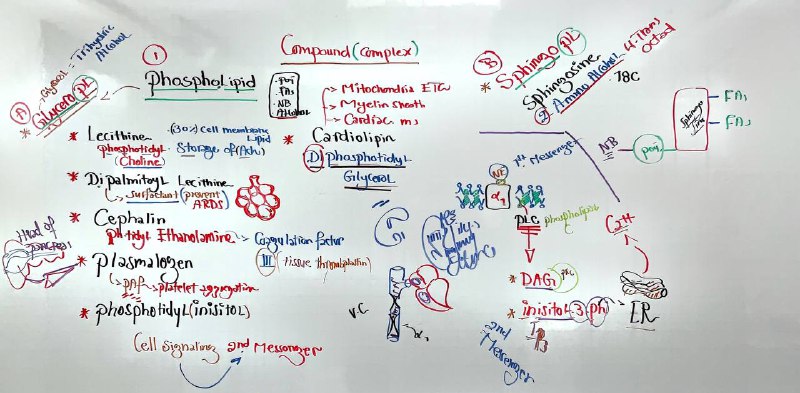 Compound (complex)
1
Phospholipid
Glycerol = Trihydric Alcohol
A
* Glycero PL
PO4
FAs
NB
Alcohol
→ Mitochondria ETC
→ Myelin sheath
→ Cardiac ms
* Lecithine (30%) Cell membrane Lipid
phosphotidyl Storage of (Ach)
(Choline)
* Dipalmitoyl Lecithine
surfactant (prevent ARDS)
* Cephalin
ph-tidyl Ethanolamine → Coagulation factor
III tissue thromboplastin
* Plasmalogen
→ PAF → platelet aggregation
* phosphotidyl (inisitol)
Cell signaling 2nd Messenger
* Cardiolipin
Di phosphatidyl
Glycerol
Head of pancreas
V.C
B
* Sphingo PL
Sphingosine
2 Amino Alcohol 18C
4-Trans
NB
PO4
FAs
FAs
1st Messenger
NE
α1
PLC phospholipase C
* DAG PKC
* inisitol-3-ph
IP3
2nd Messenger
Ca++
ER